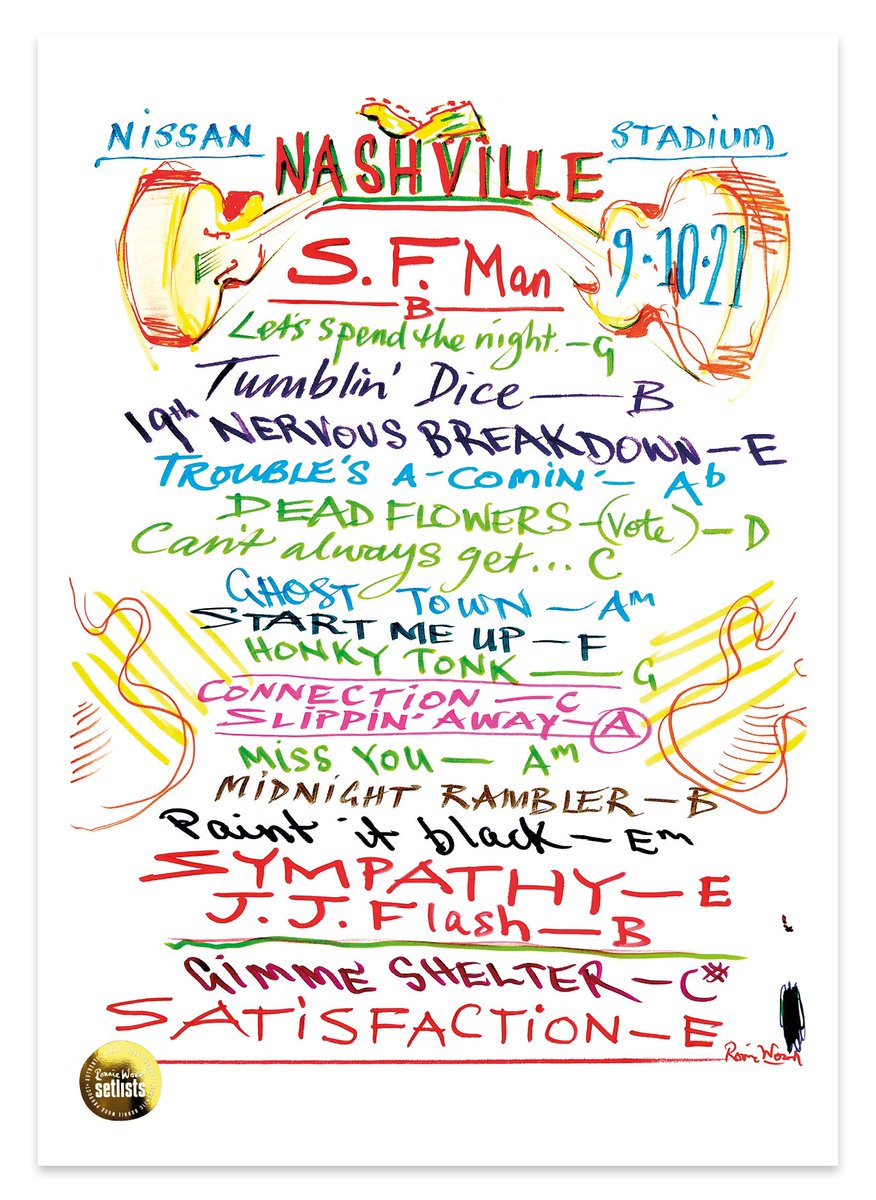 NISSAN
NASHVILLE
STADIUM
9·10·21
S.F. Man
B
Let's spend the night.—G
Tumblin' Dice — B
19th NERVOUS BREAKDOWN — E
TROUBLE'S A-COMIN' — Ab
DEAD FLOWERS—(Vote)— D
Can't always get... C
GHOST TOWN — Am
START ME UP — F
HONKY TONK — G
CONNECTION — C
SLIPPIN' AWAY — A
MISS YOU — Am
MIDNIGHT RAMBLER — B
Paint it black — Em
SYMPATHY — E
J.J. Flash — B
GIMME SHELTER — C#
SATISFACTION — E
Ronnie Wood
Ronnie Wood
setlists